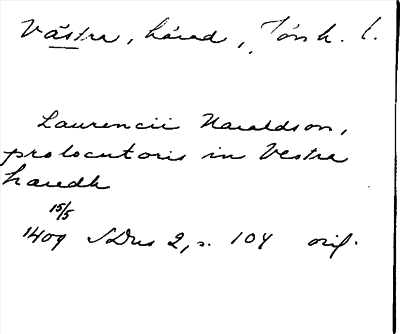 Västra, härad, Jönk. l.
Laurencii Haraldson,
prolocutoris in Vestra
haredh
15/5
1409 SDns 2, s. 104 orig.